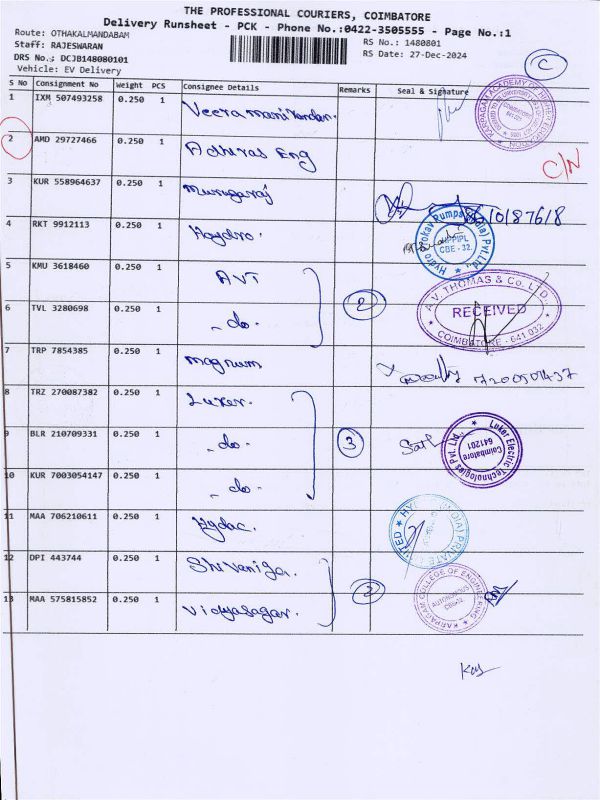 THE PROFESSIONAL COURIERS, COIMBATORE
Delivery Runsheet - PCK - Phone No.:0422-3505555 - Page No.:1
Route: OTHAKALMANDABAM
Staff: RAJESWARAN
RS No.: 1480801
DRS No.: DCJB148080101
RS Date: 27-Dec-2024
Vehicle: EV Delivery
C
S No Consignment No Weight PCS Consignee Details Remarks Seal & Signature
1 IXM 507493258 0.250 1 Veeramanikandan.
2 AMD 29727466 0.250 1 Adhiras Eng
C/N
3 KUR 558964637 0.250 1 Murugaraj
4 RKT 9912113 0.250 1 Hydro.
HPPIPL
CBE - 32.
5 KMU 3618460 0.250 1 AVT
2
A.V. THOMAS & Co. LTD.,
RECEIVED
COIMBATORE - 641 032
6 TVL 3280698 0.250 1 - do -
7 TRP 7854385 0.250 1 magnum
8 TRZ 270087382 0.250 1 Luker.
9 BLR 210709331 0.250 1 - do -
3
Luker Electric Technologies Pvt. Ltd.,
Coimbatore
641201
10 KUR 7003054147 0.250 1 - do -
11 MAA 706210611 0.250 1 Hydac.
12 DPI 443744 0.250 1 Shivaniga.
2
KARPAGAM COLLEGE OF ENGINEERING
AUTONOMOUS
13 MAA 575815852 0.250 1 Vidyasagar.